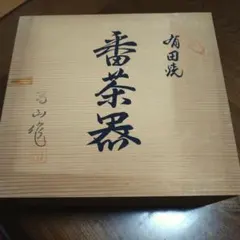 有田焼
番茶器